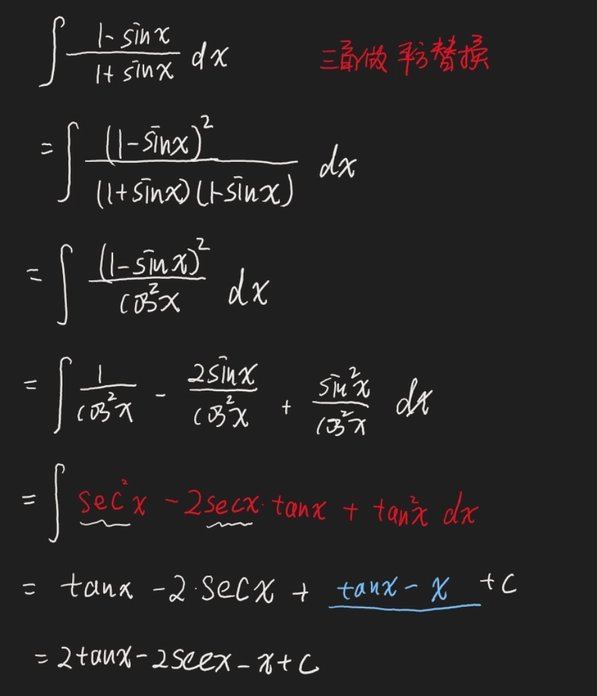 ∫ (1 - sinx)/(1 + sinx) dx 三角做平方替换
= ∫ (1-sinx)²/((1+sinx)(1-sinx)) dx
= ∫ (1-sinx)²/cos²x dx
= ∫ 1/cos²x - 2sinx/cos²x + sin²x/cos²x dx
= ∫ sec²x - 2secx·tanx + tan²x dx
= tanx - 2·secx + tanx - x + c
= 2tanx - 2secx - x + c